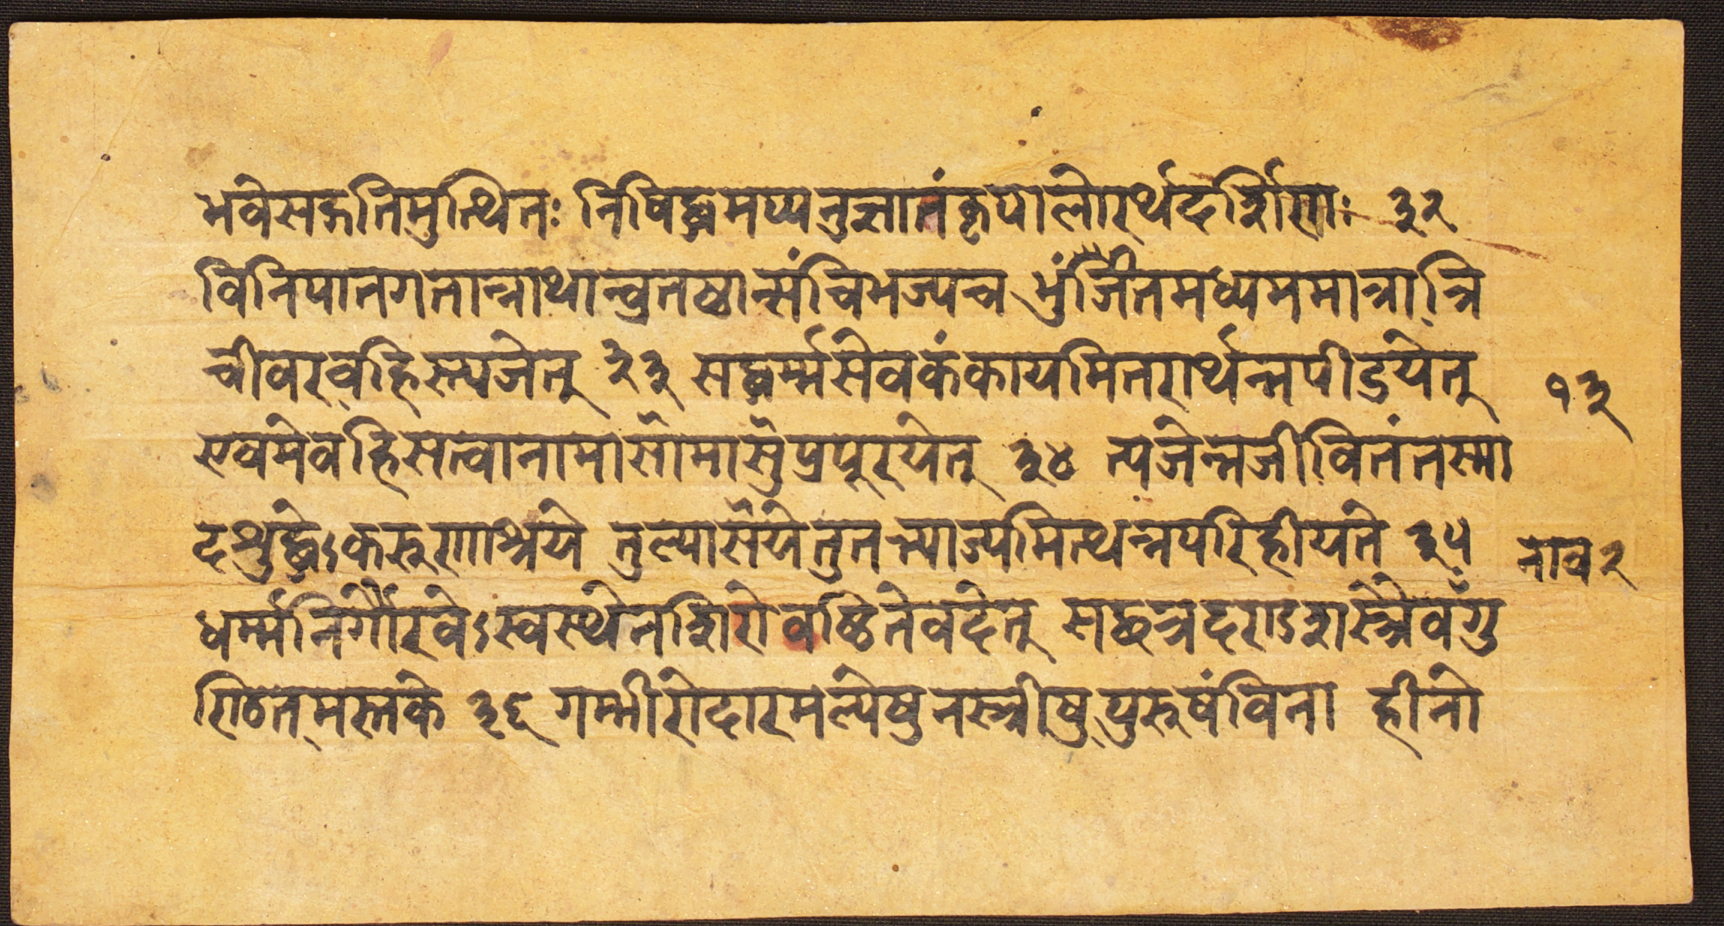 भवेसद्गतिमुत्थितः निषिद्धमप्यनुज्ञातंकृपालोरर्थदर्शिणः ३२
विनिपातगतान्नाथान्व्रतष्ठान्संविभज्यच भुंजीतमध्यममात्रान्त्रि
चीवरवहिस्त्यजेत् ३३ सद्धर्म्मसेवकंकायमितरार्थन्नपीडयेत्
एवमेवहिसत्वानामासोमासुप्रपूरयेत् ३४ त्यजेन्नजीवितंतस्मा
दशुद्धेऽकरुणाश्रये तुल्यासेयेतुतत्त्याज्यमित्थन्नपरिहीयते ३५
धर्म्मनिर्गौरवेऽस्वस्थेनशिरोवष्ठितेवदेत् सछत्रदराऽशस्त्रैवगु
ण्ठितमस्तके ३६ गम्भीरोदारमल्पेषुनस्त्रीषुपुरुषंविना हीनो
१३
नाव२